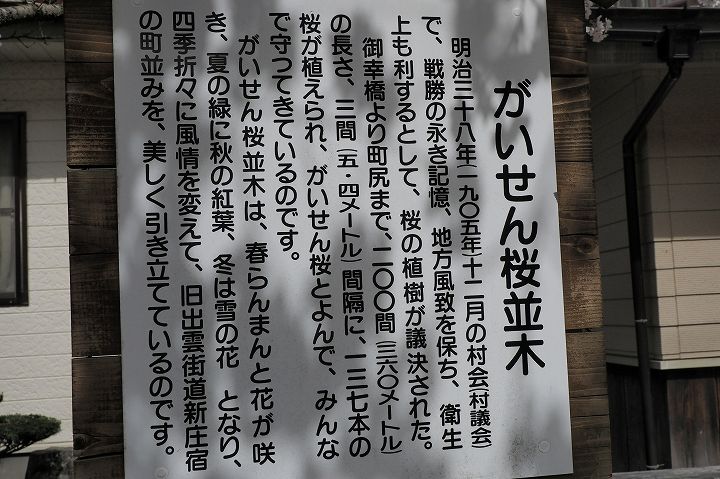 がいせん桜並木
明治三十八年(一九〇五年)十二月の村会(村議会)
で、戦勝の永き記憶、地方風致を保ち、衛生
上も利するとして、桜の植樹が議決された。
御幸橋より町尻まで、二〇〇間(三六〇メートル)
の長さ、三間(五・四メートル)間隔に、一三七本の
桜が植えられ、がいせん桜とよんで、みんな
で守つてきているのです。
がいせん桜並木は、春らんまんと花が咲
き、夏の緑に秋の紅葉、冬は雪の花 となり、
四季折々に風情を変えて、旧出雲街道新庄宿
の町並みを、美しく引き立てているのです。